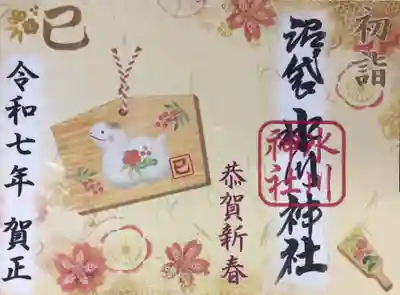 初詣
沼袋 氷川神社
氷川神社
恭賀新春
巳
巳
令和七年 賀正